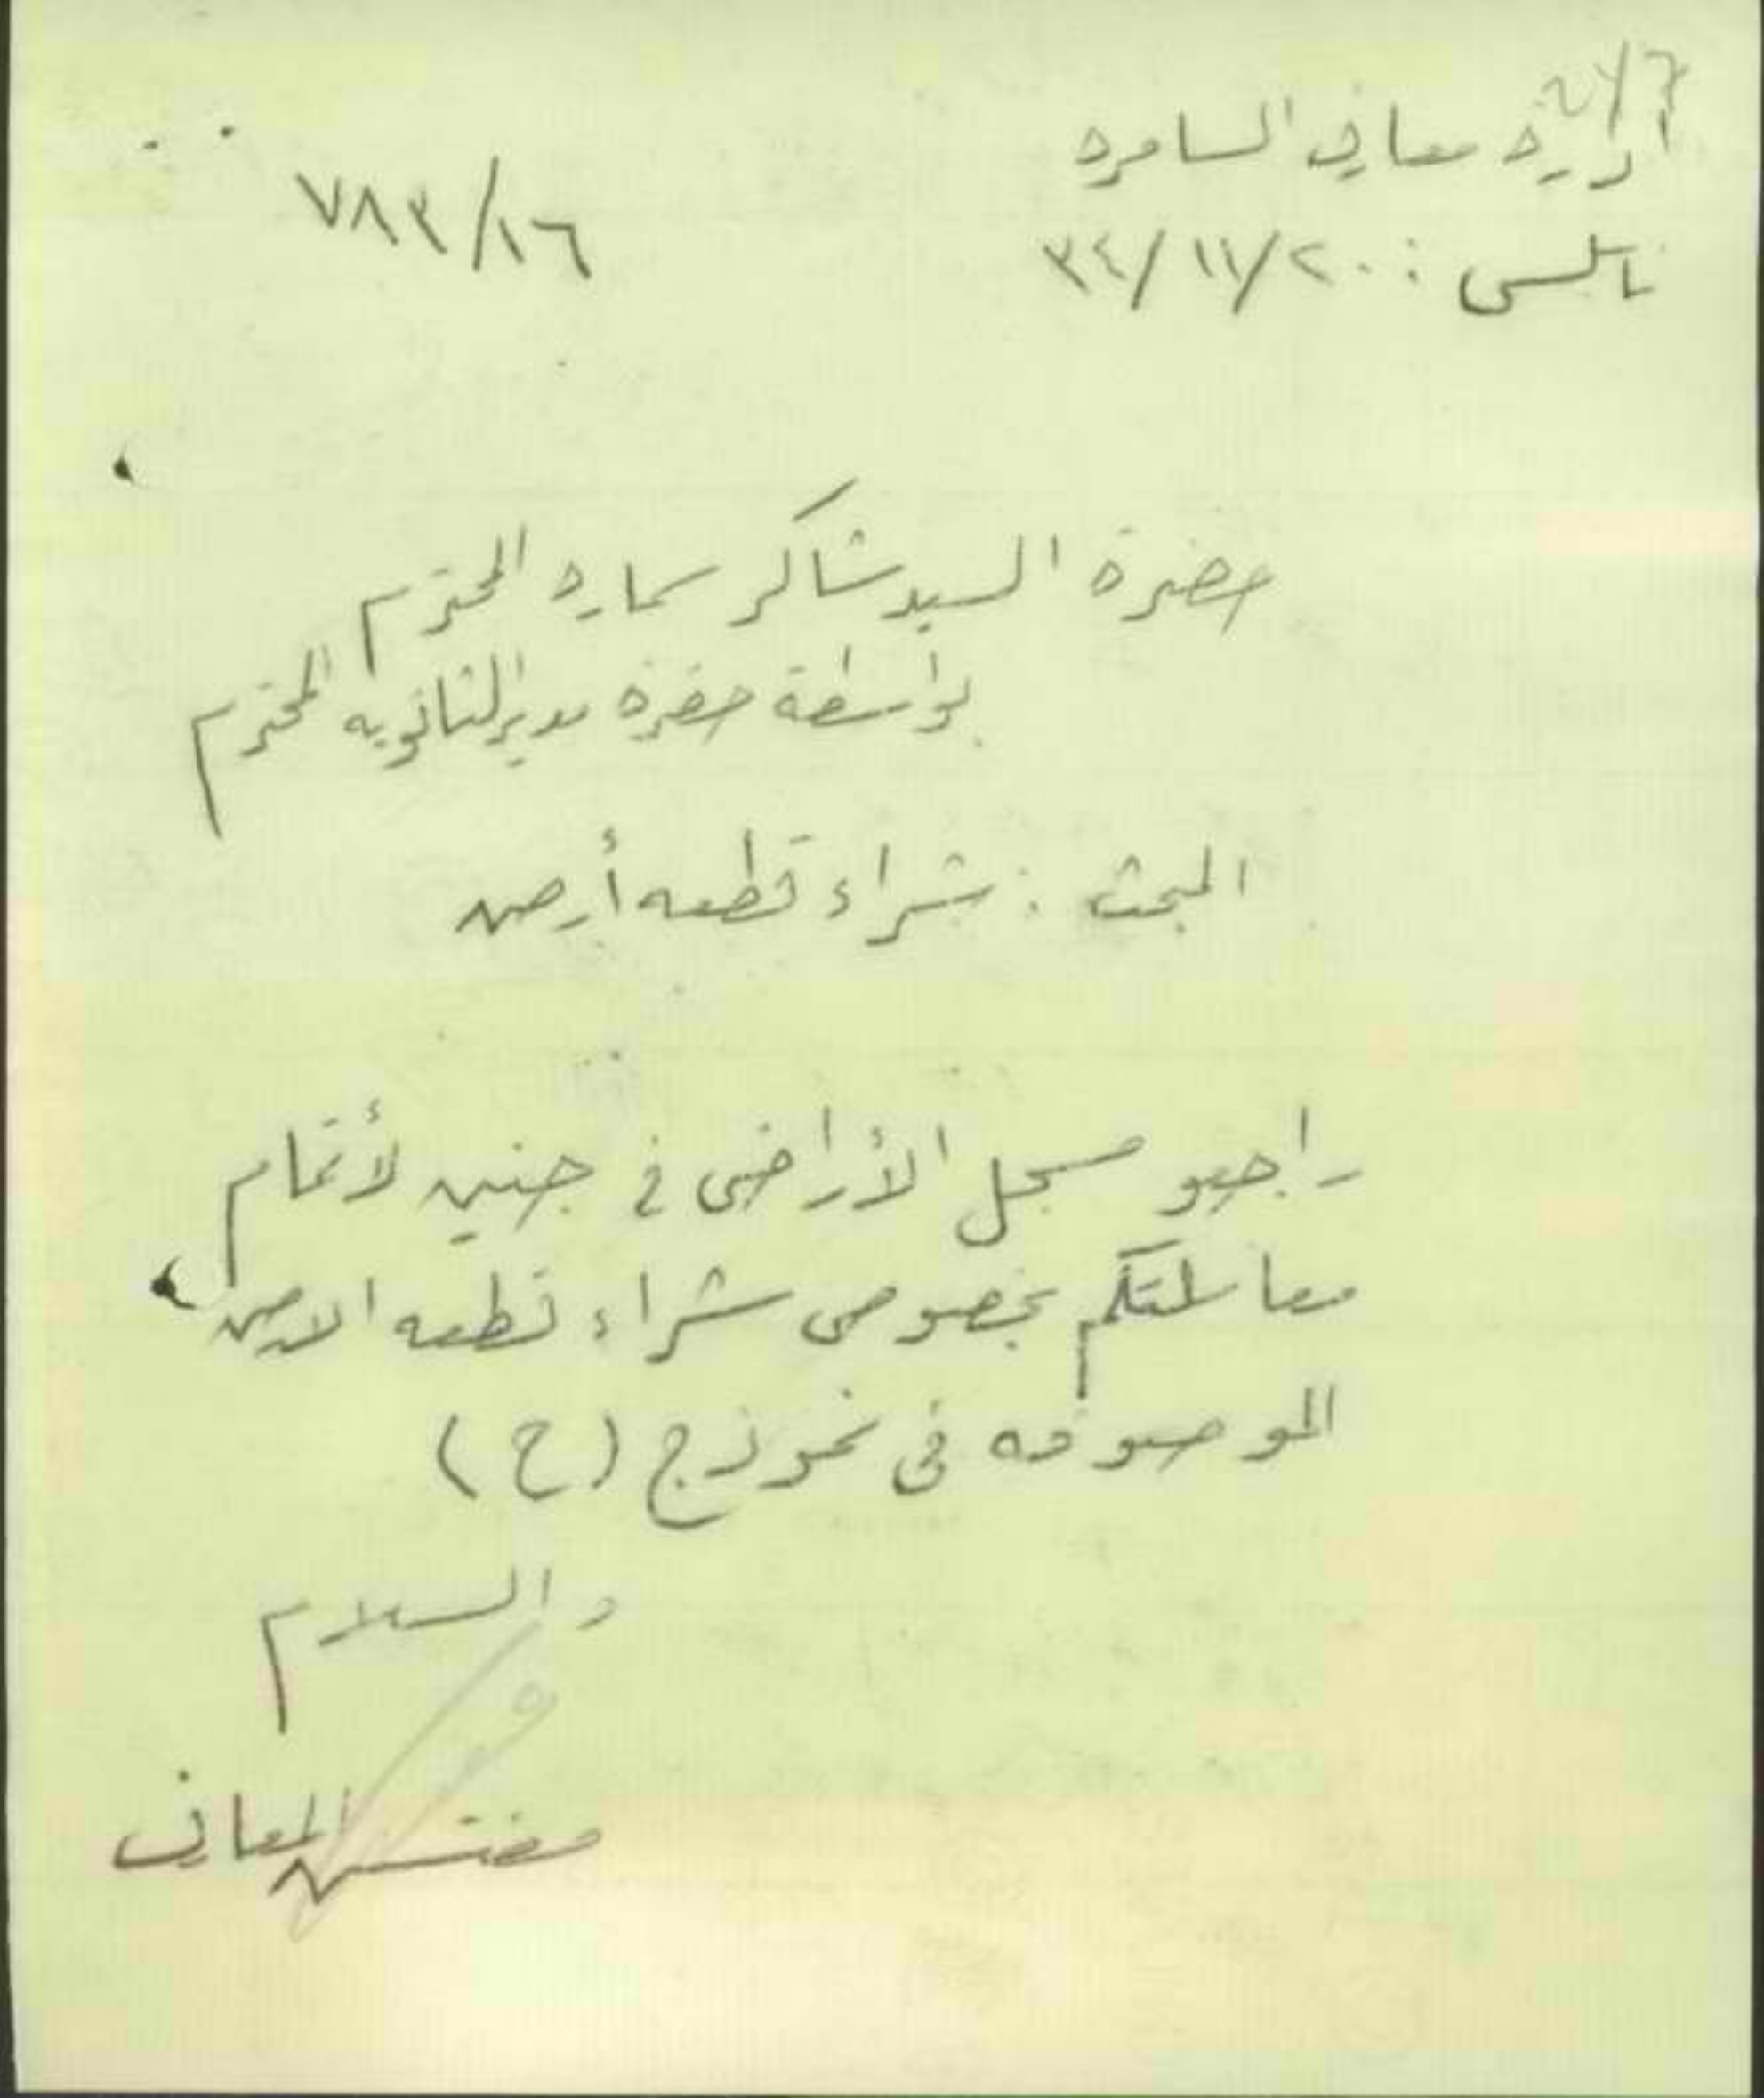 ادارة معارف السامره
نابلس : ٢٠/١١/٣٤
٧٨٣/١٦
حضرة السيد شاكر سماره المحترم
بواسطة حضرة مدير الثانويه المحترم
البحث : شراء قطعه أرض
راجعو مسجل الأراضى فى جنين لأتمام
معاملتكم بخصوص شراء قطعه الارض
الموصوفه فى نموذج (ح)
والسلام
مفتش المعارف